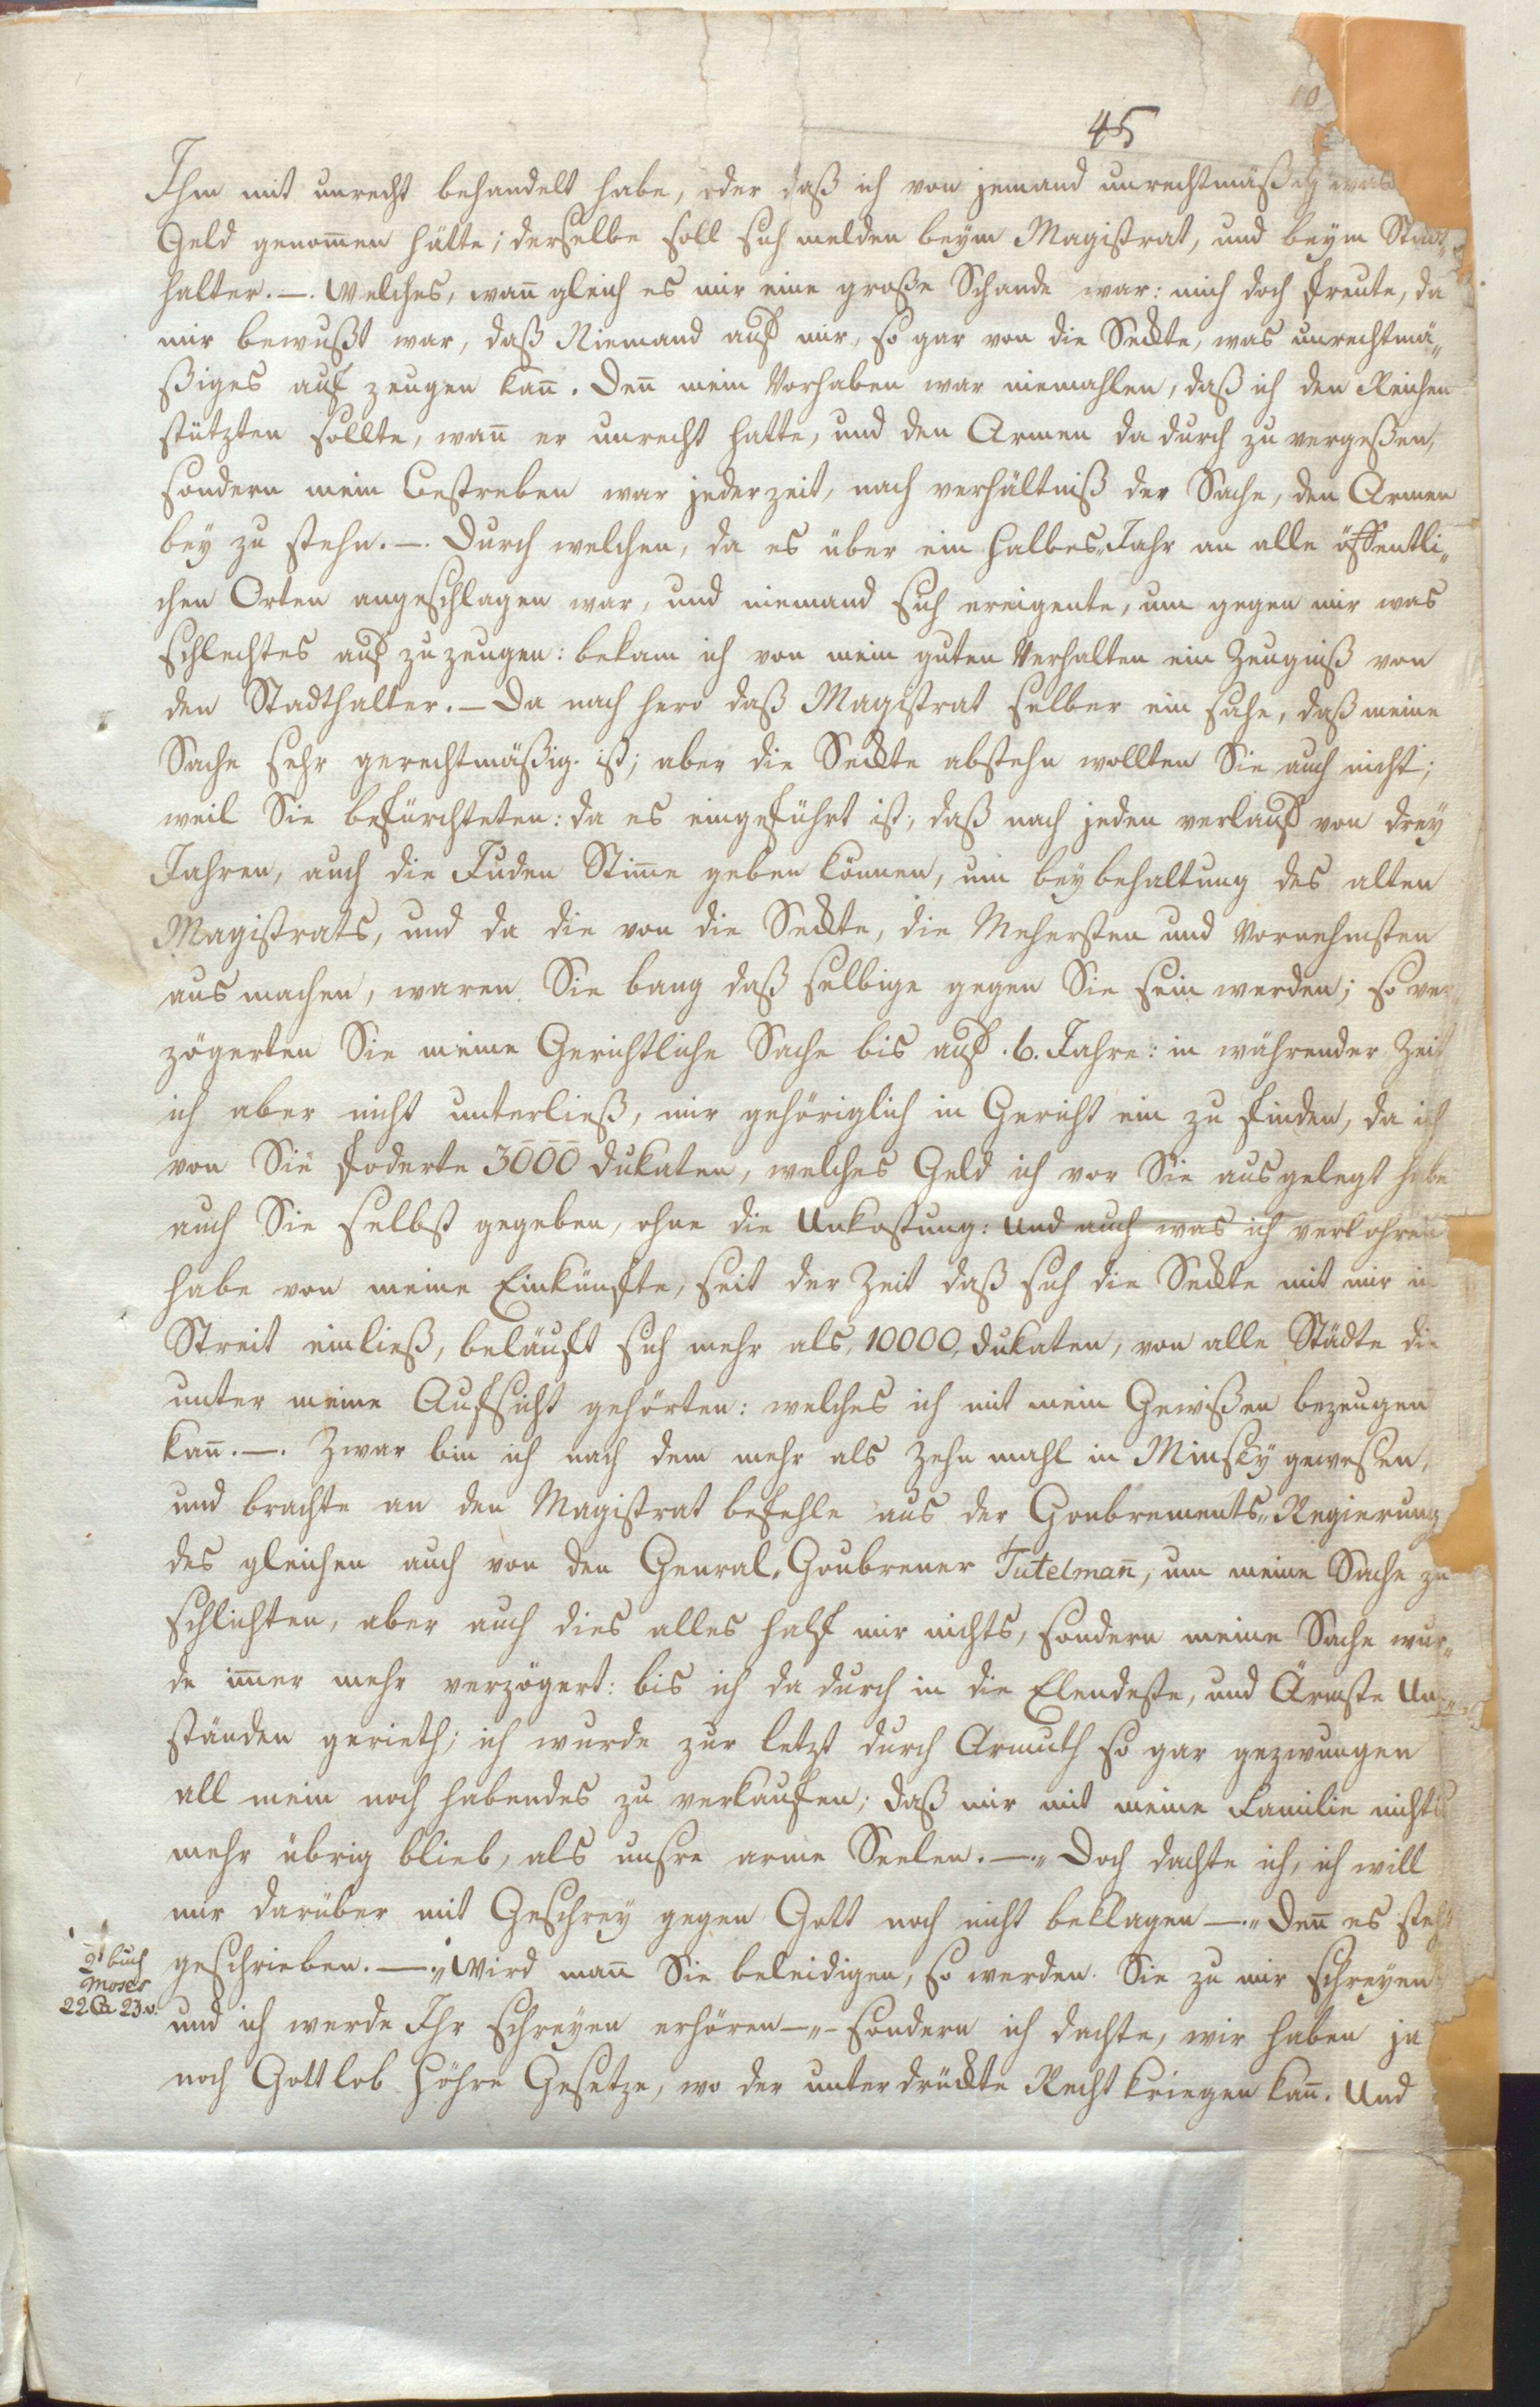 45
Ihm mit unrecht behandelt habe, oder daß ich von jemand unrechtmäßig was
Geld genom̄en hätte; derselbe soll sich melden beÿm Magistrat, und beÿm Stadt„
halter. —. Welches, wan̄ gleich es mir eine große Schande war: mich doch freute, da
mir bewußt war, daß Niemand auf mir, so gar von die Seckte, was unrechtmä„
ßiges auf zeugen kan̄. Den̄ mein Vorhaben war niemahlen, daß ich den Reichen
stützten sollte, wan̄ er unrecht hatte, und den Armen da durch zu vergeßen,
sondern mein Bestreben war jederzeit, nach verhältniß der Sache, den Armen
beÿ zu stehn. —. Durch welchen, da es über ein halbes Jahr an alle öffentli„
chen Orten angeschlagen war, und niemand sich ereigente, um gegen mir was
schlechtes auf zu zeugen: bekam ich von mein guten Verhalten ein Zeugniß von
den Stadthalter. — Da nach hero daß Magistrat selber ein sahe, daß meine
Sache sehr gerechtmäßig ist; aber die Seckte abstehn wollten Sie auch nicht;
weil Sie befürchteten: da es eingeführt ist, daß nach jeden verlauf von dreÿ
Jahren, auch die Juden Stim̄e geben können, um beÿbehaltung des alten
Magistrats, und da die von die Seckte, die Mehersten und Vornehmsten
aus machen, waren Sie bang daß selbige gegen Sie sein werden; so ver„
zögerten Sie meine Gerichtliche Sache bis auf .6. Jahre: in währender Zeit
ich aber nicht unterließ, mir gehöriglich in Gericht ein zu finden, da ich
von Sie foderte 3000 Dukaten, welches Geld ich vor Sie ausgelegt habe
auch Sie selbst gegeben, ohne die Unkostung: Und auch was ich verlohren
habe von meine Einkünfte, seit der Zeit daß sich die Seckte mit mir in
Streit einließ, beläuft sich mehr als, 10000, Dukaten, von alle Städte die
unter meine Aufsicht gehörten: welches ich mit mein Gewißen bezeugen
kan̄. —. Zwar bin ich nach dem mehr als Zehn mahl in Minskÿ gewesen,
und brachte an den Magistrat befehle aus der Goubrements„Regierung
des gleichen auch von den Genral„Goubrener Tutelman̄, um meine Sache zu
schlichten, aber auch dies alles half mir nichts, sondern meine Sache wur„
de im̄er mehr verzögert: bis ich da durch in die Elendeste, und Ärmste Um„
ständen gerieth; ich wurde zur letzt durch Armuth so gar gezwungen
all mein noch habendes zu verkaufen; daß mir mit meine Familie nichts
mehr übrig blieb, als unsre arme Seelen. —.„ Doch dachte ich, ich will
mir darüber mit Geschreÿ gegen Gott noch nicht beklagen —.„ Den̄ es steht
2t buch
Moses
22 Ca 23 v.
geschrieben. —.„ Wird man̄ Sie beleidigen, so werden Sie zu mir schreÿen
und ich werde Ihr schreÿen erhören —„— sondern ich dachte, wir haben ja
noch Gottlob Höhre Gesetze, wo der unterdrückte Recht kriegen kan̄. Und